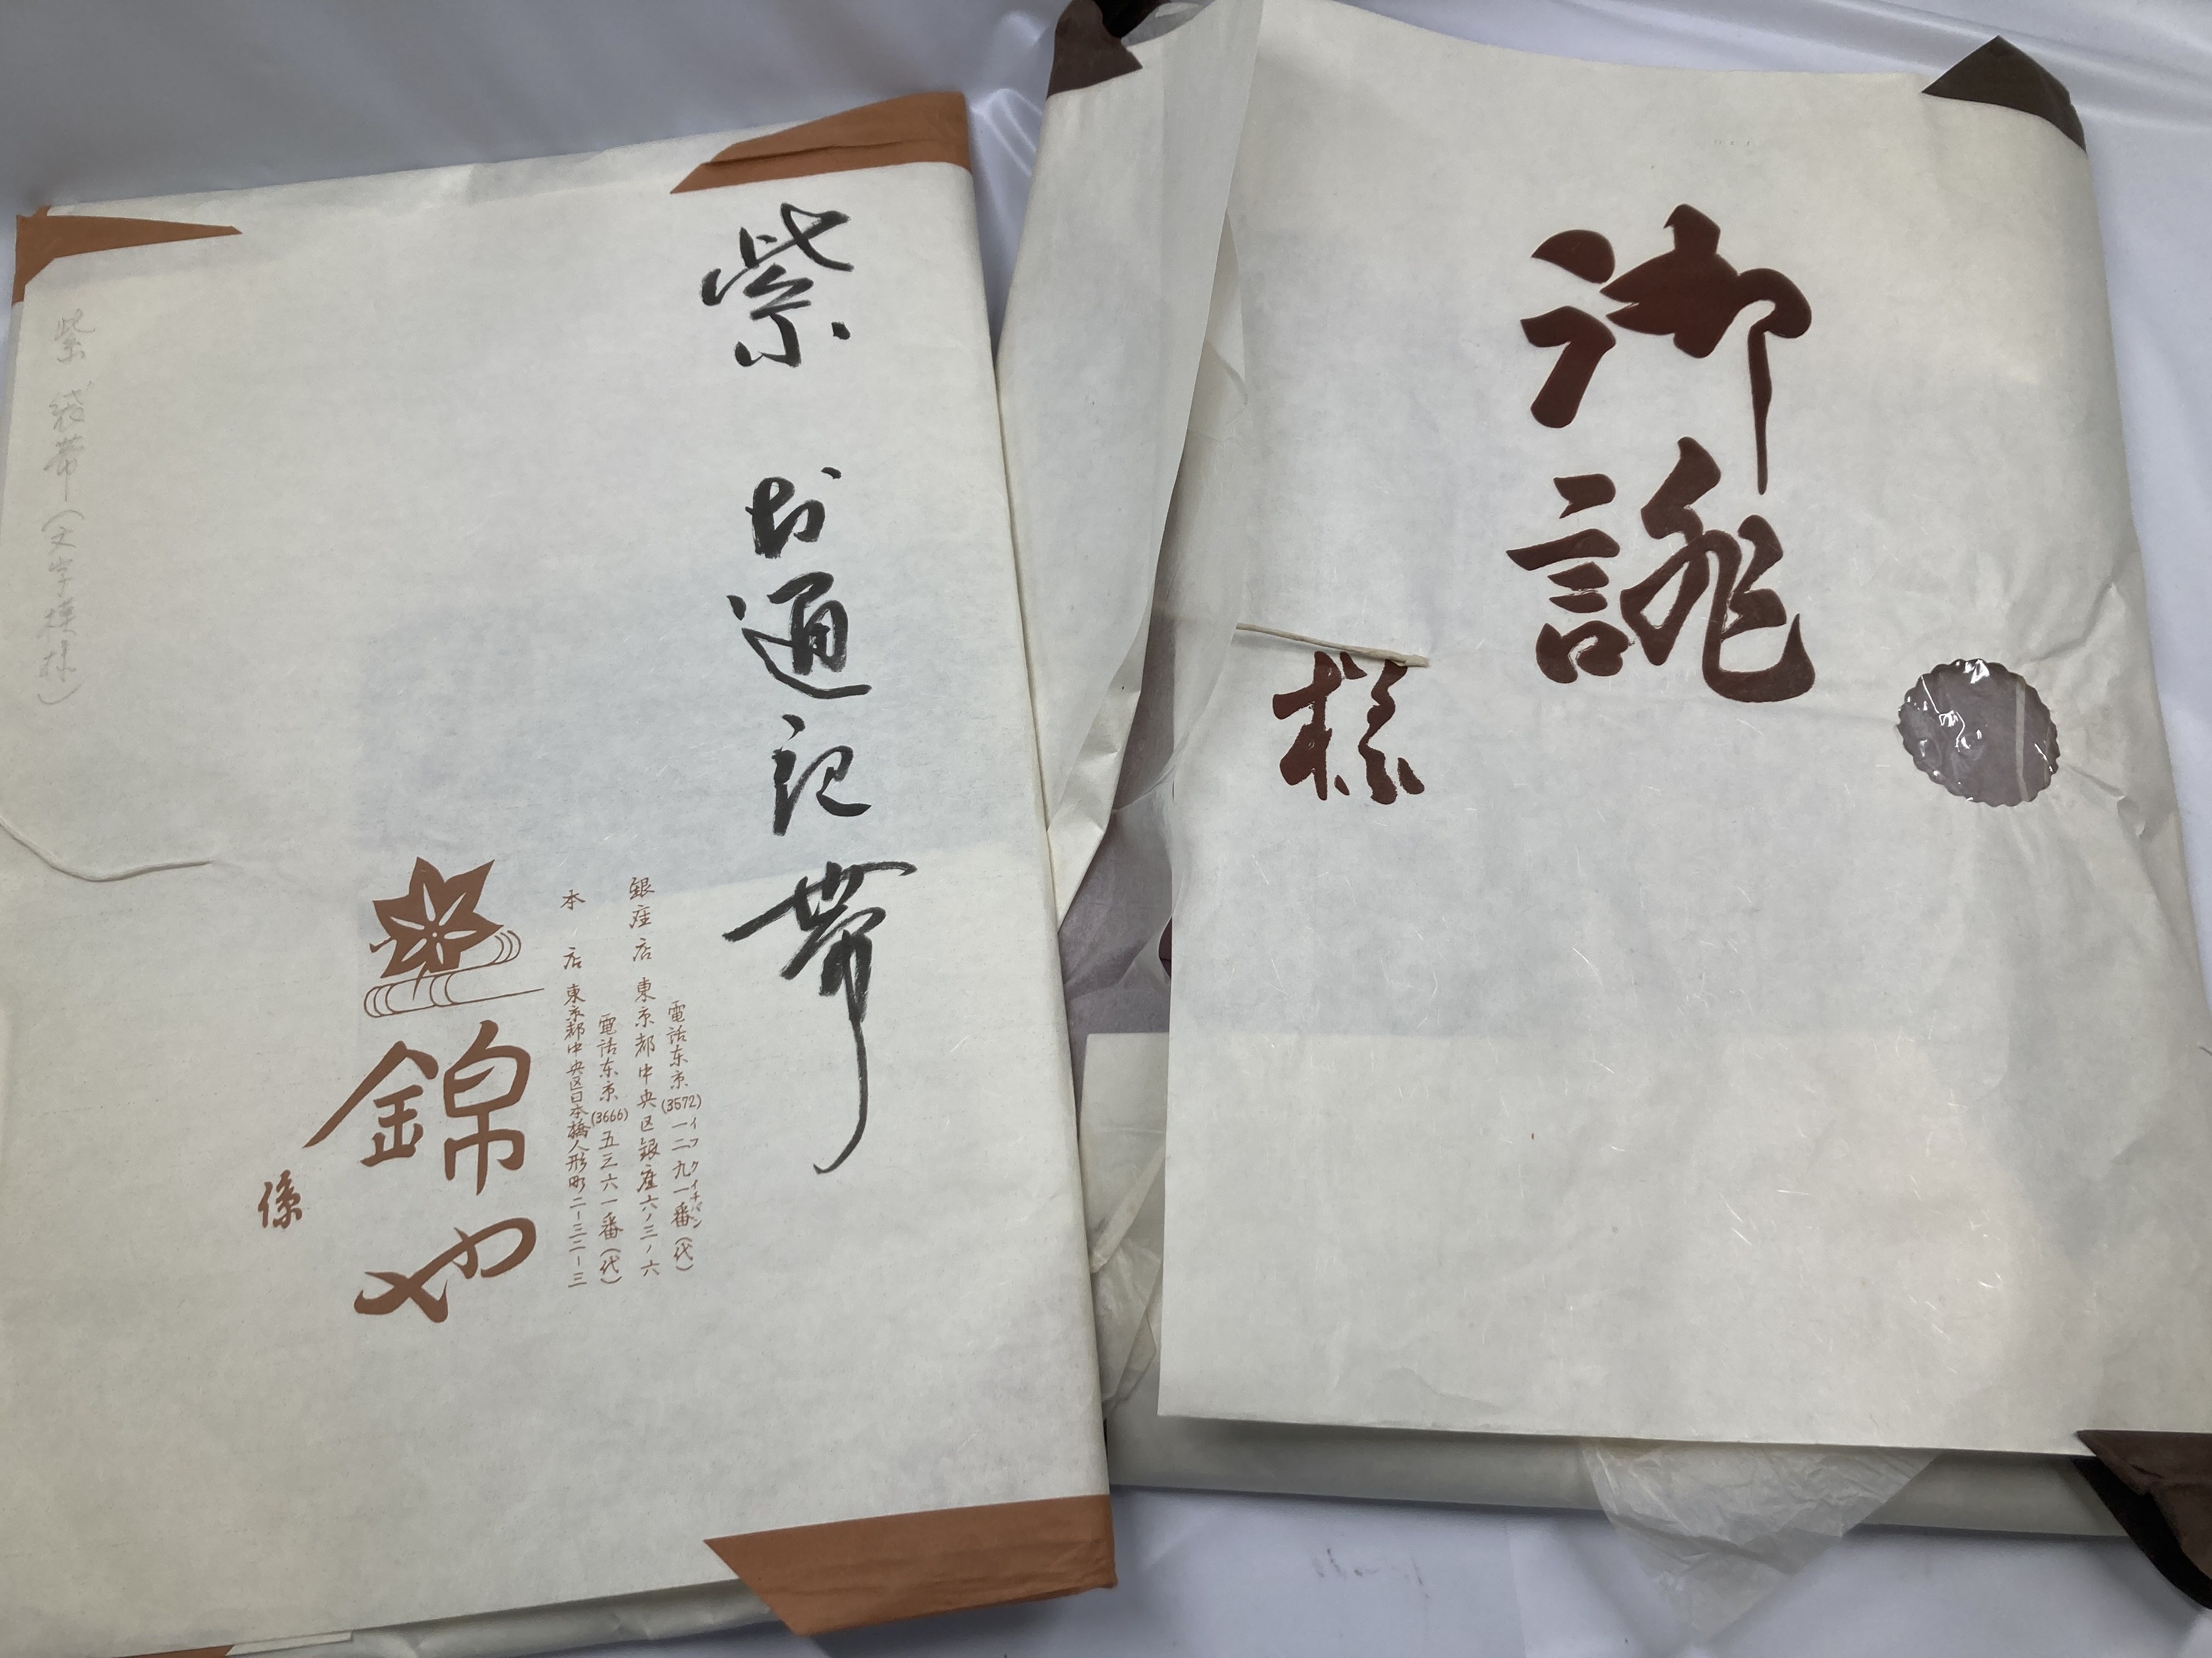 御誂
様
紫 书通记帯
電話东京(3572)一二九一番(代)
イフクイチバン
銀座店 東京都中央区銀座六ノ三ノ六
電話东京(3666)五三六一番(代)
本店 東京都中央区日本橋人形町二ー三二ー三
錦や
係
紫 袋帯(文字模様)